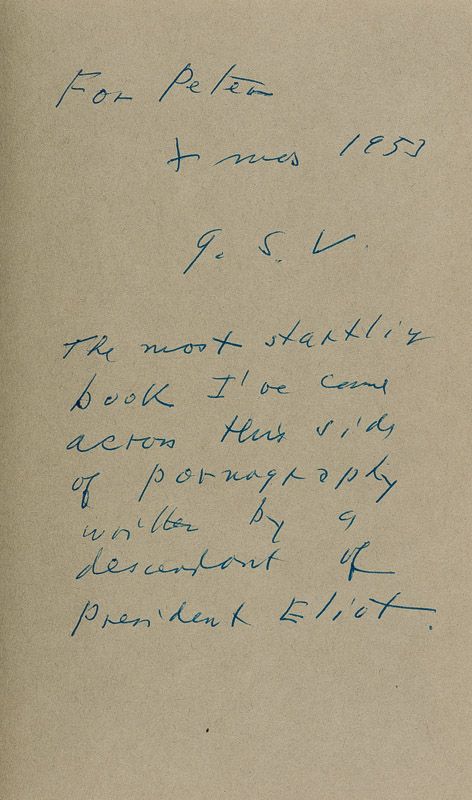 For Peter
Xmas 1953
G. S. V.
The most startling
book I've come
across this side
of pornography
written by a
descendant of
President Eliot.